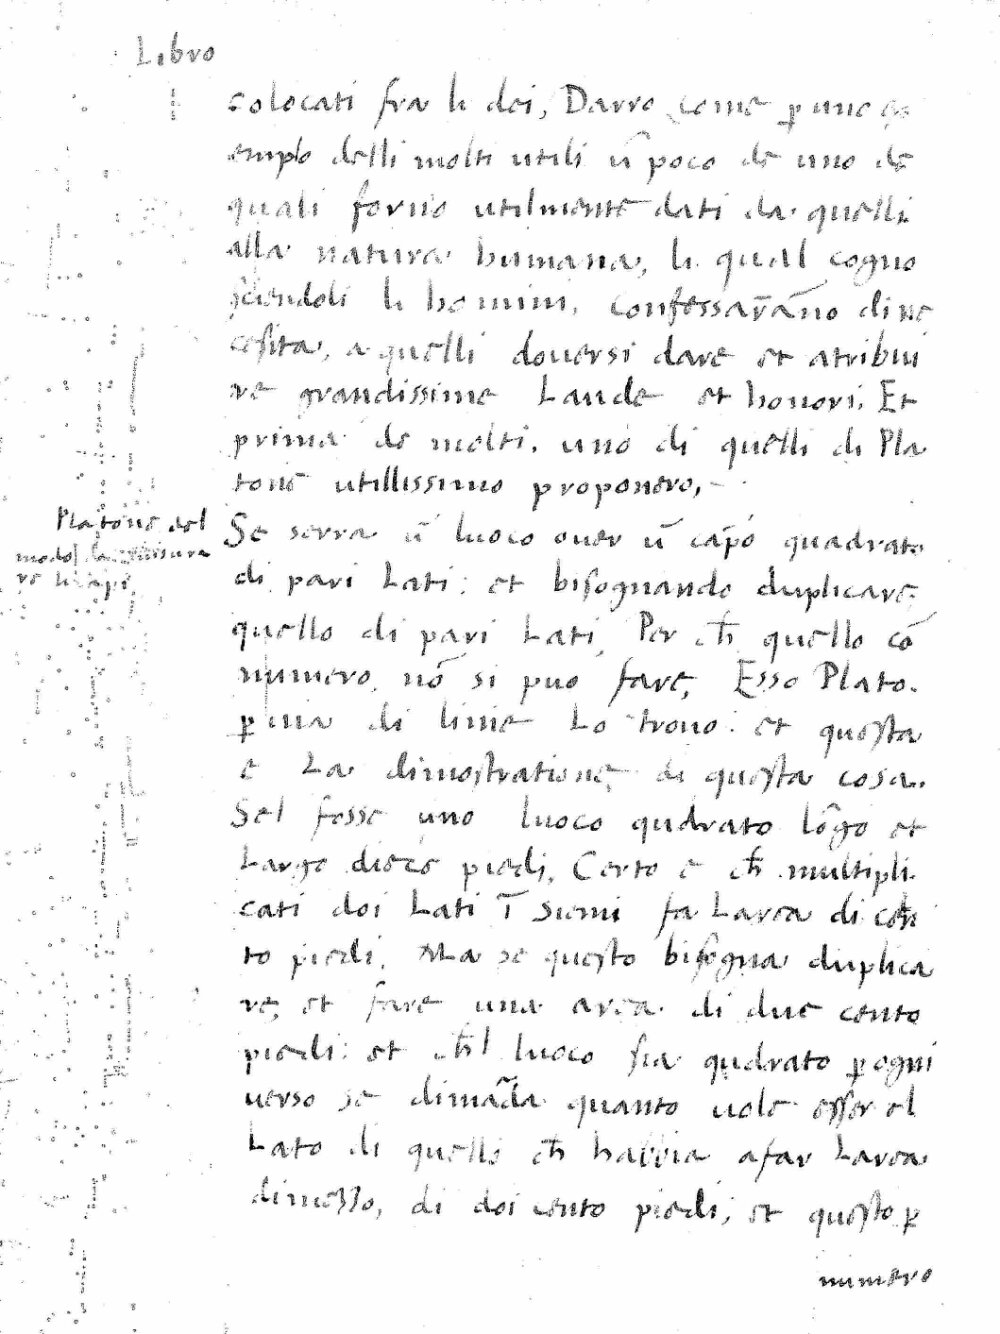 Libro
colocati fra li dei, Darro come ꝑ uno es
emplo delli molti utili ũ poco de uno de
quali forno utilmente dati da quelli
alla natura humana, li qual cogno
sciendoli li homini, confessarãno di ne
cesita, a quelli douersi dare et atribui
re grandissime Laude et honori. Et
prima de molti, uno di quelli di Pla
tone utillissimo proponero,
Platone del
modo da misura
re li capi
Se serra ũ luoco ouer ũ cãpo quadrato
di pari Lati: et bisognando duplicare
quello di pari Lati, Per ch̃ quello cõ
numero, nõ si puo fare, Esso Plato.
ꝑ uia di linie Lo trouo: et questa
e La dimostratione di questa cosa.
Sel fosse uno luoco qudrato lõgo et
Largo diece piedi, Certo e ch̃ multipli
cati doi Lati ĩ siemi fa Larea di cen
to piedi. Ma se questo bisogna duplica
re, et fare una area di due cento
piedi: et ch̃l luoco sia qudrato ꝑ ogni
uerso se dimãda quanto uole esser el
Lato di quello ch̃ habbia afar Larea
dimezzo, di doi cento piedi, et questo ꝑ
numero